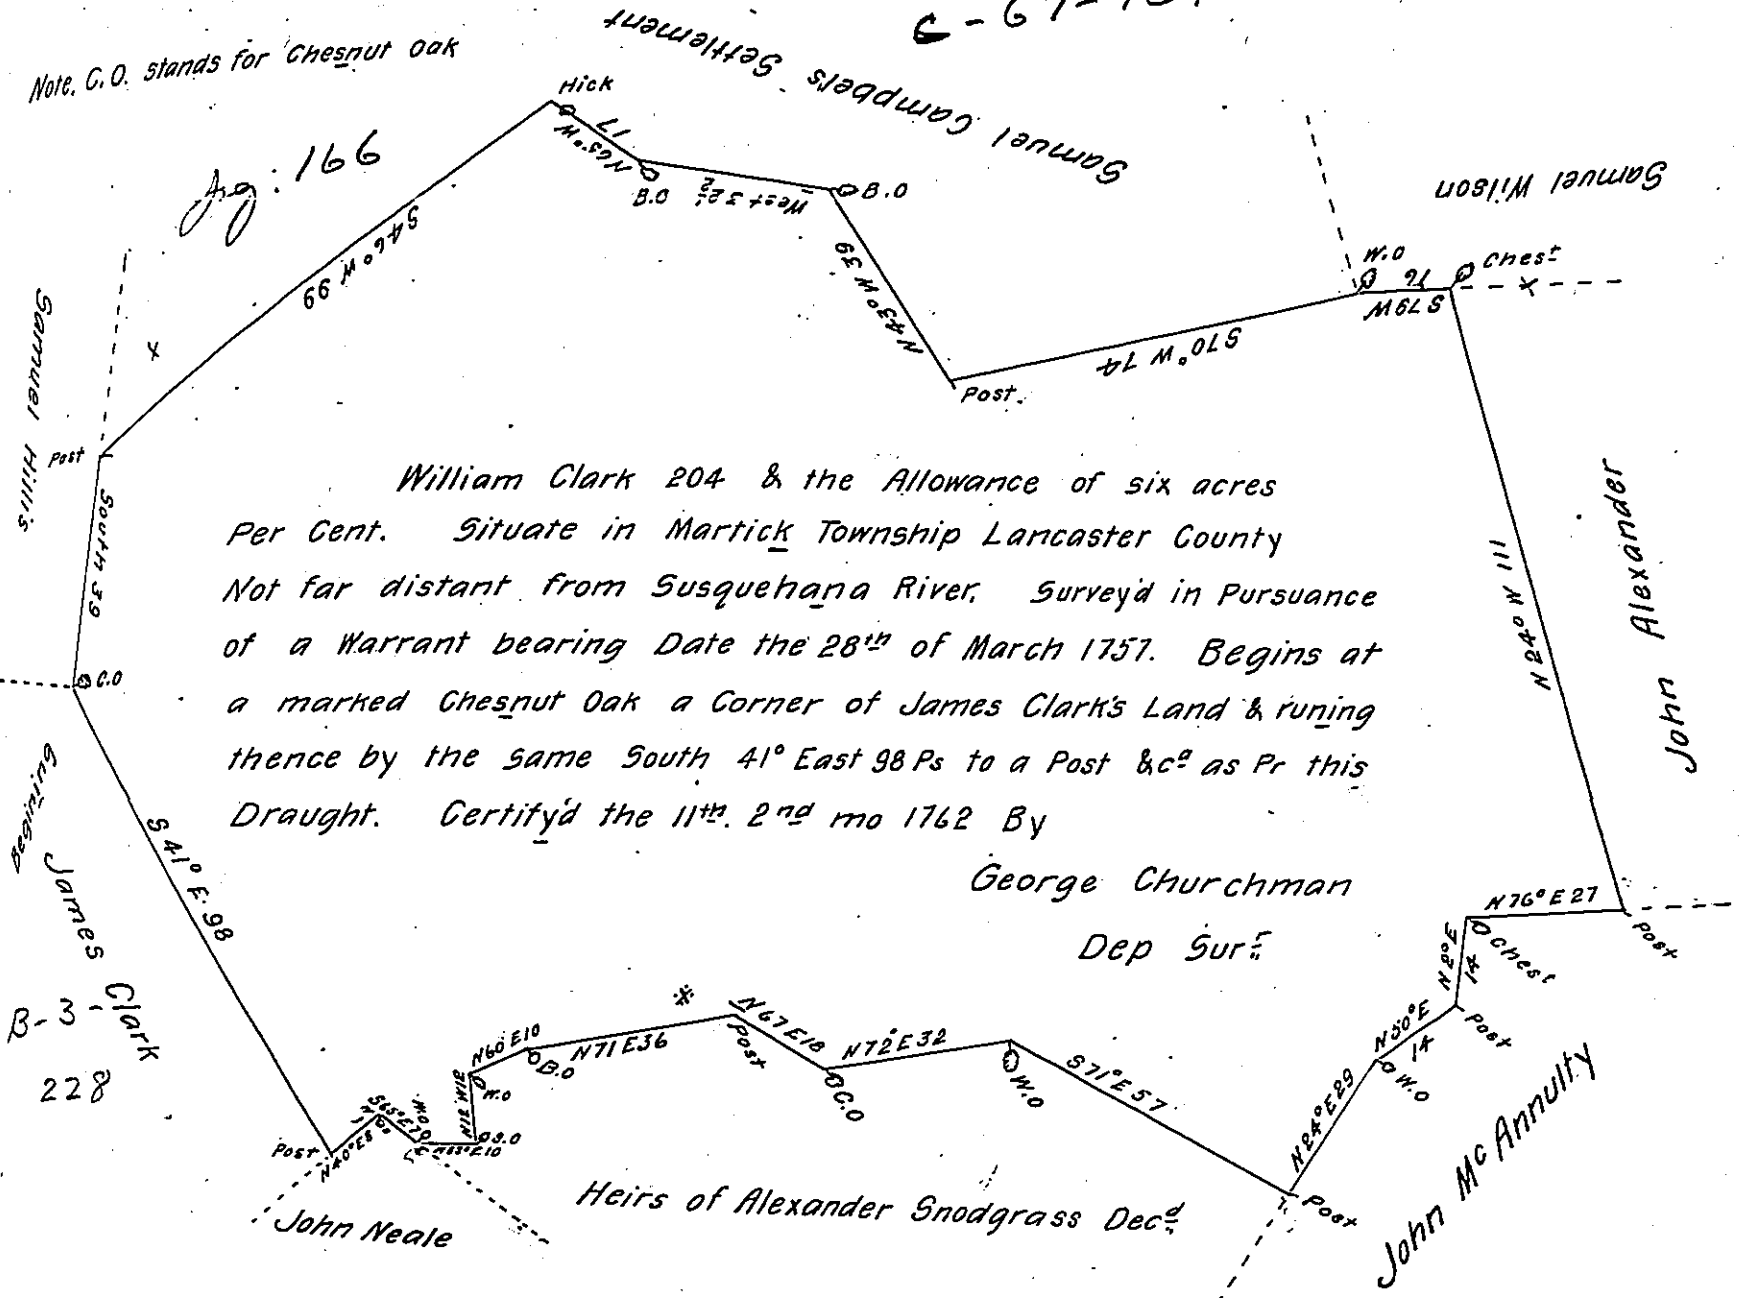 Note. C.O. stands for Chesnut Oak
166
Samuel Campbers Settlement
Samuel Wilson
Hick
N65°W
17
B.O
West 32½
B.O
N43°W 39
Post.
S70°W 74
W.O
S79W
16
Chest
S46°W 99
Samuel Hillis
Post
South 39
C.O
N24°W 111
John Alexander
William Clark 204 & the Allowance of six acres
Per Cent. Situate in Martick Township Lancaster County
Not far distant from Susquehana River. Survey'd in Pursuance
of a Warrant bearing Date the 28th of March 1757. Begins at
a marked Chesnut Oak a Corner of James Clark's Land & runing
thence by the same South 41° East 98 Ps to a Post &ca as Pr this
Draught. Certify'd the 11th. 2nd mo 1762 By
George Churchman
Dep Surr
Begining
James Clark
B-3-
228
S41°E.98
Post
N40°E8
S65°E
B.O
N60E10
B.O
N71E36
Post
N67E18
C.O
N72°E32
W.O
S71°E57
Post
N24°E29
W.O
N50°E
14
Post
N2°E
14
Chest
N76°E27
Post
John Neale
Heirs of Alexander Snodgrass Decd
John McAnnulty